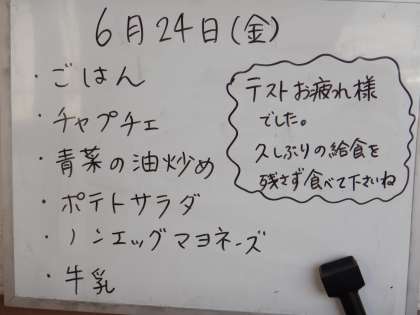 6月24日(金)
・ごはん
・チャプチェ
・青菜の油炒め
・ポテトサラダ
・ノンエッグマヨネーズ
・牛乳
テストお疲れ様
でした。
久しぶりの給食を
残さず食べて下さいね